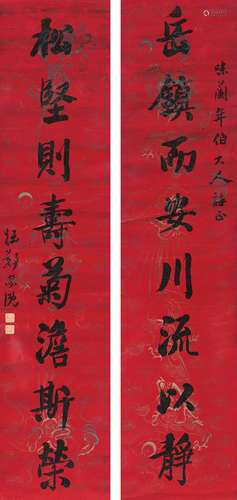 岳鎮而安川流以靜
味蘭年伯大人譁正
松堅則壽菊澹斯榮